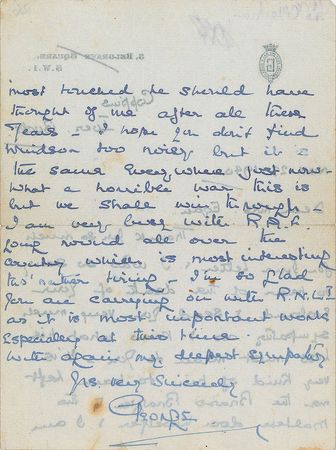 3, BELGRAVE SQUARE,
S.W.1.
most touched he should have
thought of me after all these
years – I hope you don't find
Windsor too noisy but it is
the same everywhere just now
what a horrible war this is
but we shall win through –
I am very busy with R.A.F.
going round all over the
country which is most interesting
tho' rather tiring – I'm so glad
you are carrying on with R.N.L.I
as it is most important work
Especially at this time.
With again my deepest sympathy
Yrs. very sincerely
GEORGE